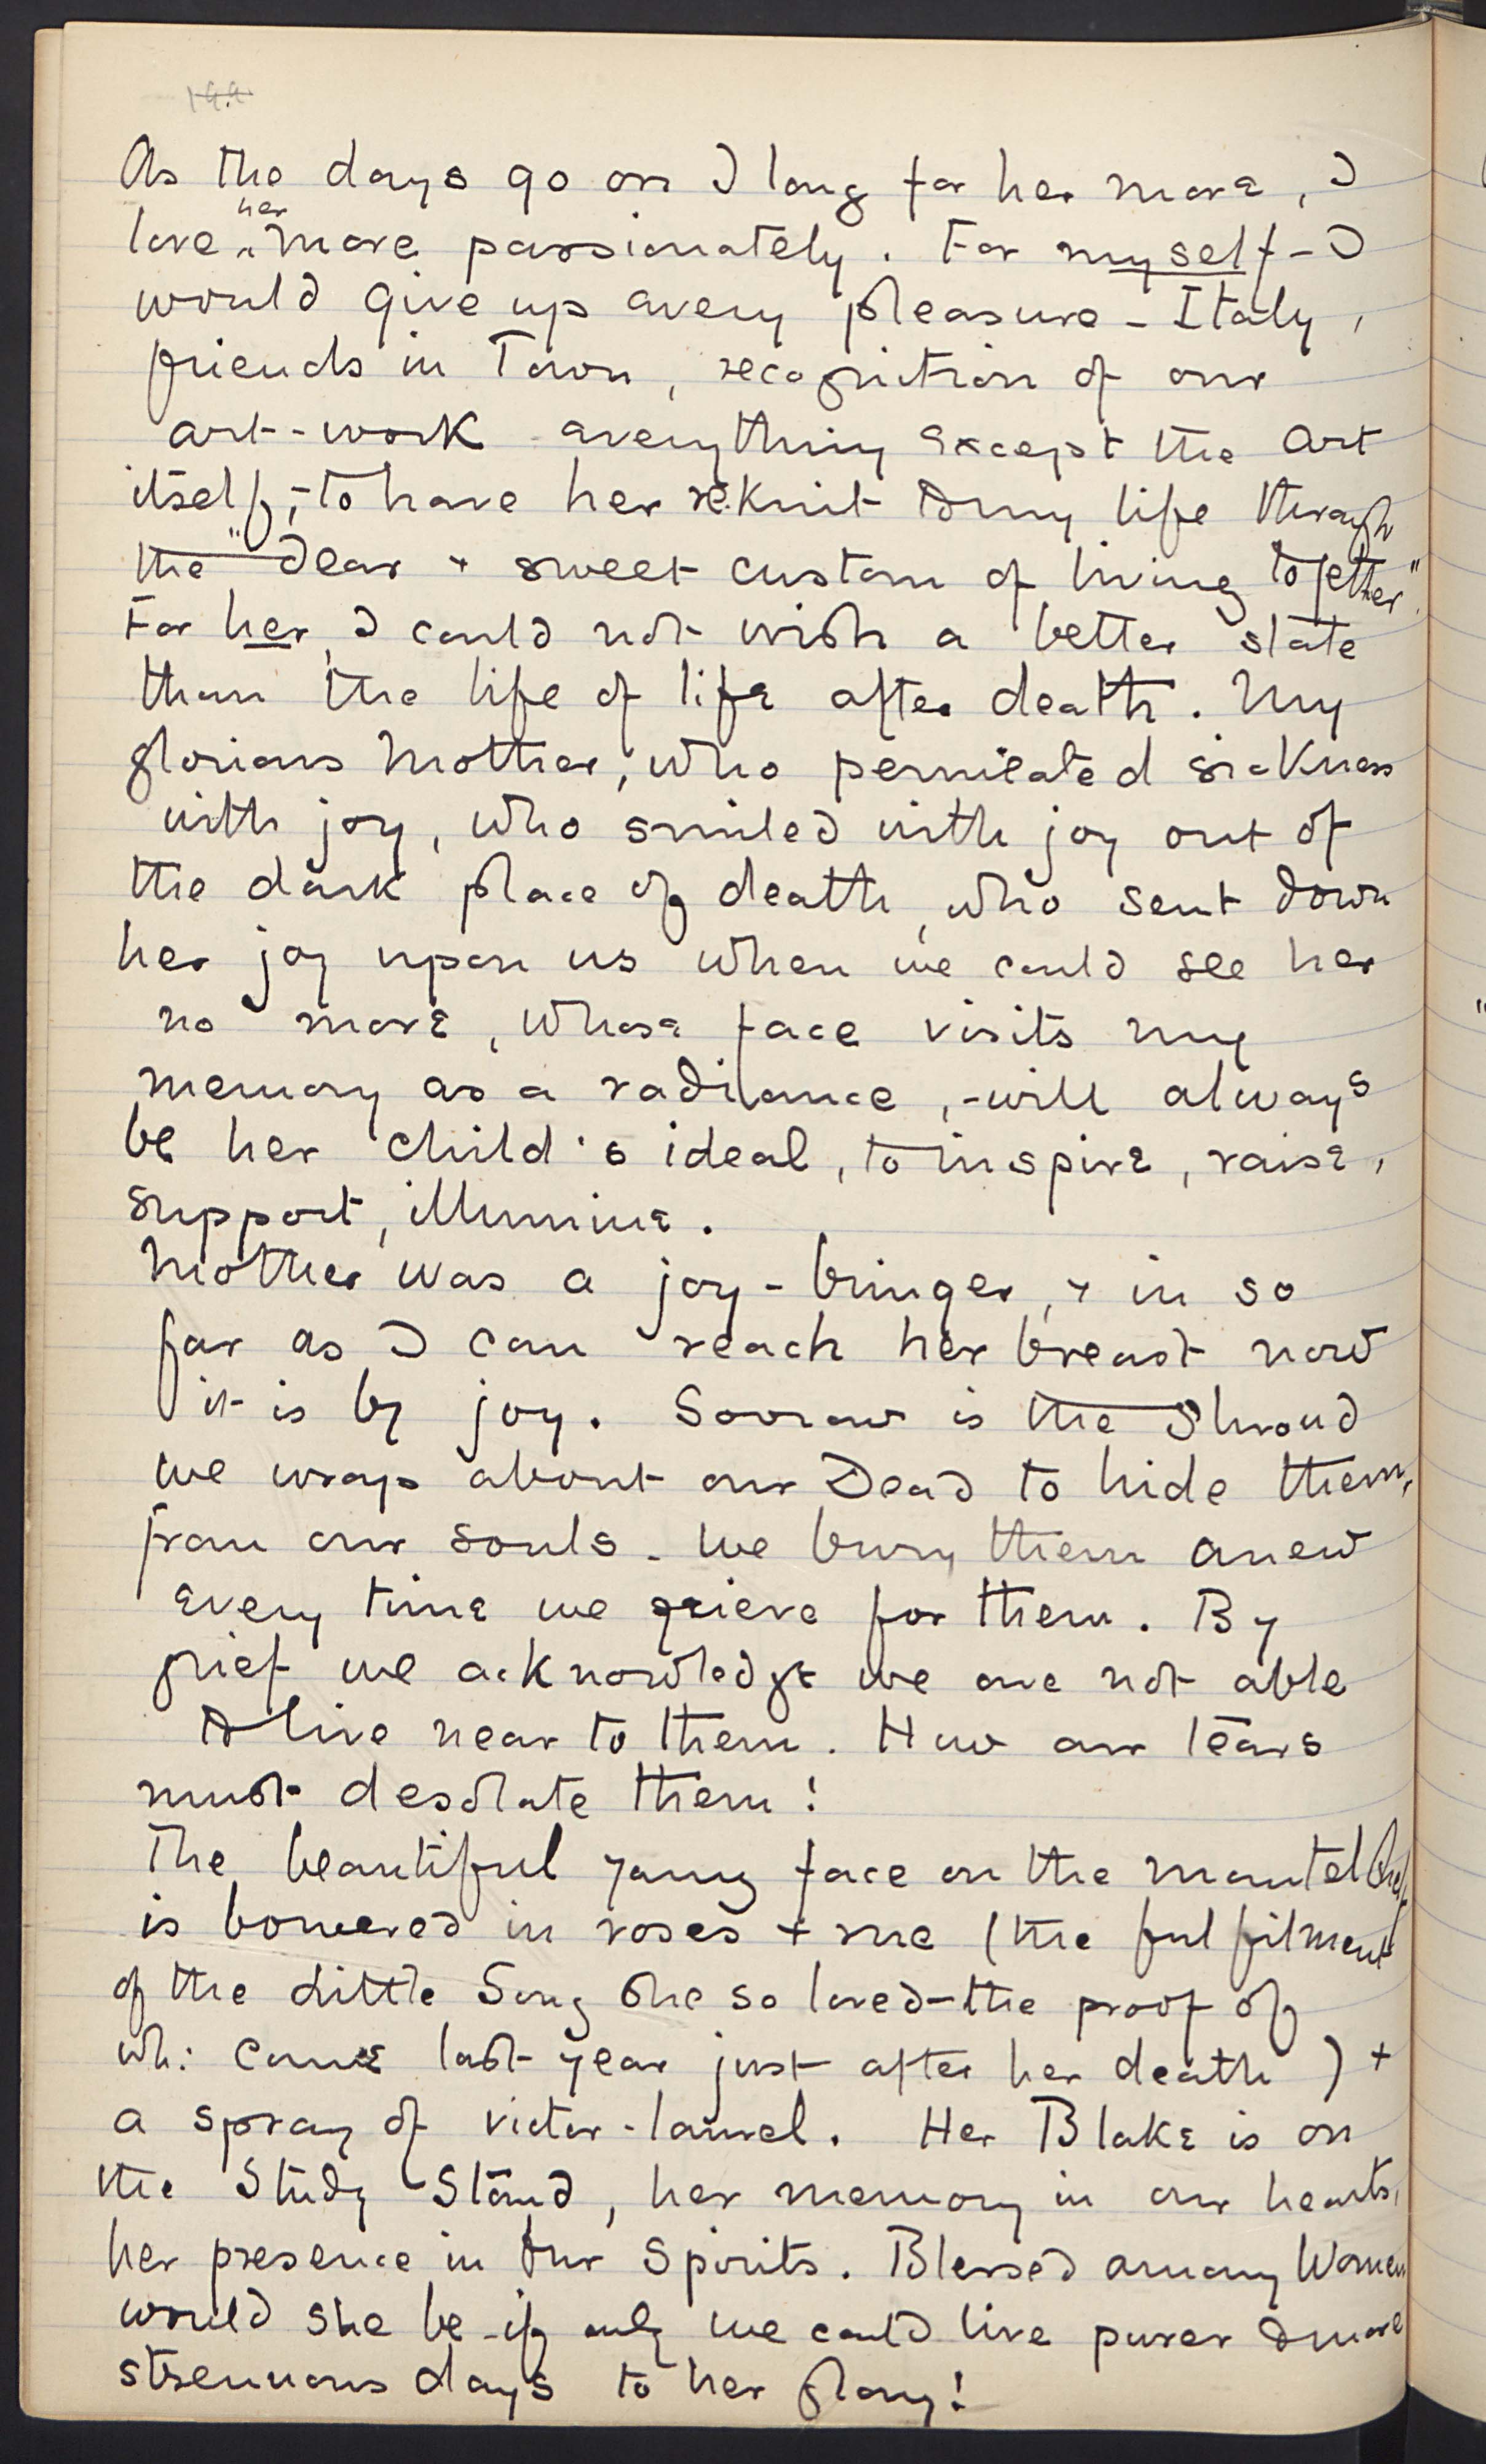 As the days go on I long for her more, I
love her more passionately. For myself - I
would give up every pleasure - Italy,
friends in Town, recognition of our
art-work everything except the art
itself, - to have her reknit to my life through
the "dear + sweet custom of living together".
For her, I could not wish a better state
than the life of life after death. My
glorious Mother, who permeated sickness
with joy, who smiled with joy out of
the dark place of death, who sent down
her joy upon us when we could see her
no more, whose face visits my
memory as a radiance, - will always
be her child's ideal, to inspire, raise,
support, illumine.
Mother was a joy-bringer, + in so
far as I can reach her breast now
it is by joy. Sorrow is the shroud
we wrap about our Dead to hide them,
from our souls. We bury them anew
every time we grieve for them. By
grief we acknowledge we are not able
to live near to them. How our tears
must desolate them!
The beautiful young face on the mantelshelf
is bowered in roses + rue (the fulfilment
of the Little Song she so loved - the proof of
wh: came last year just after her death) +
a spray of victor-laurel. Her Blake is on
the Study Stand, her memory in our hearts,
her presence in our Spirits. Blessed among Women
would she be - if only we could live purer & more
strenuous days to her glory!